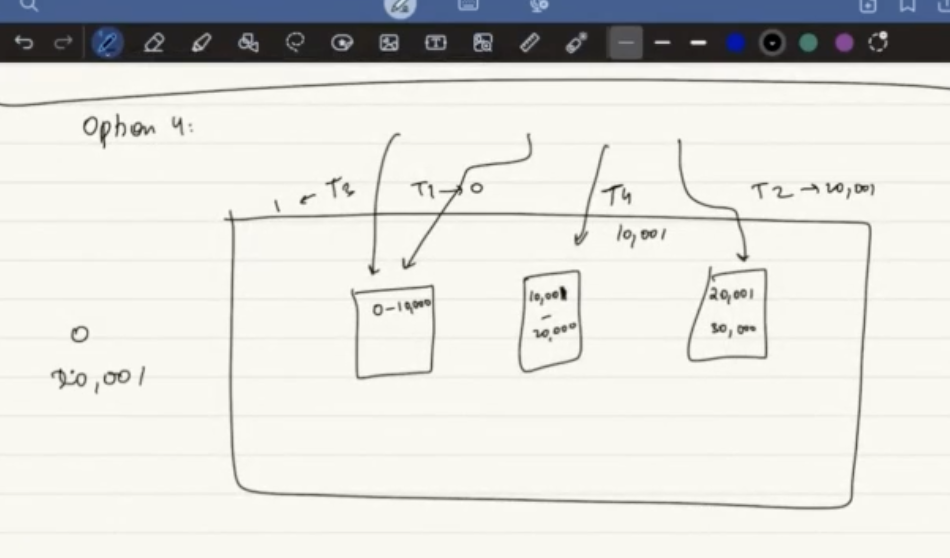 Option 4:
1 ← T3
T1 → 0
T4
10,001
T2 → 20,001
0 - 10,000
10,001
-
20,000
20,001
30,000
0
20,001